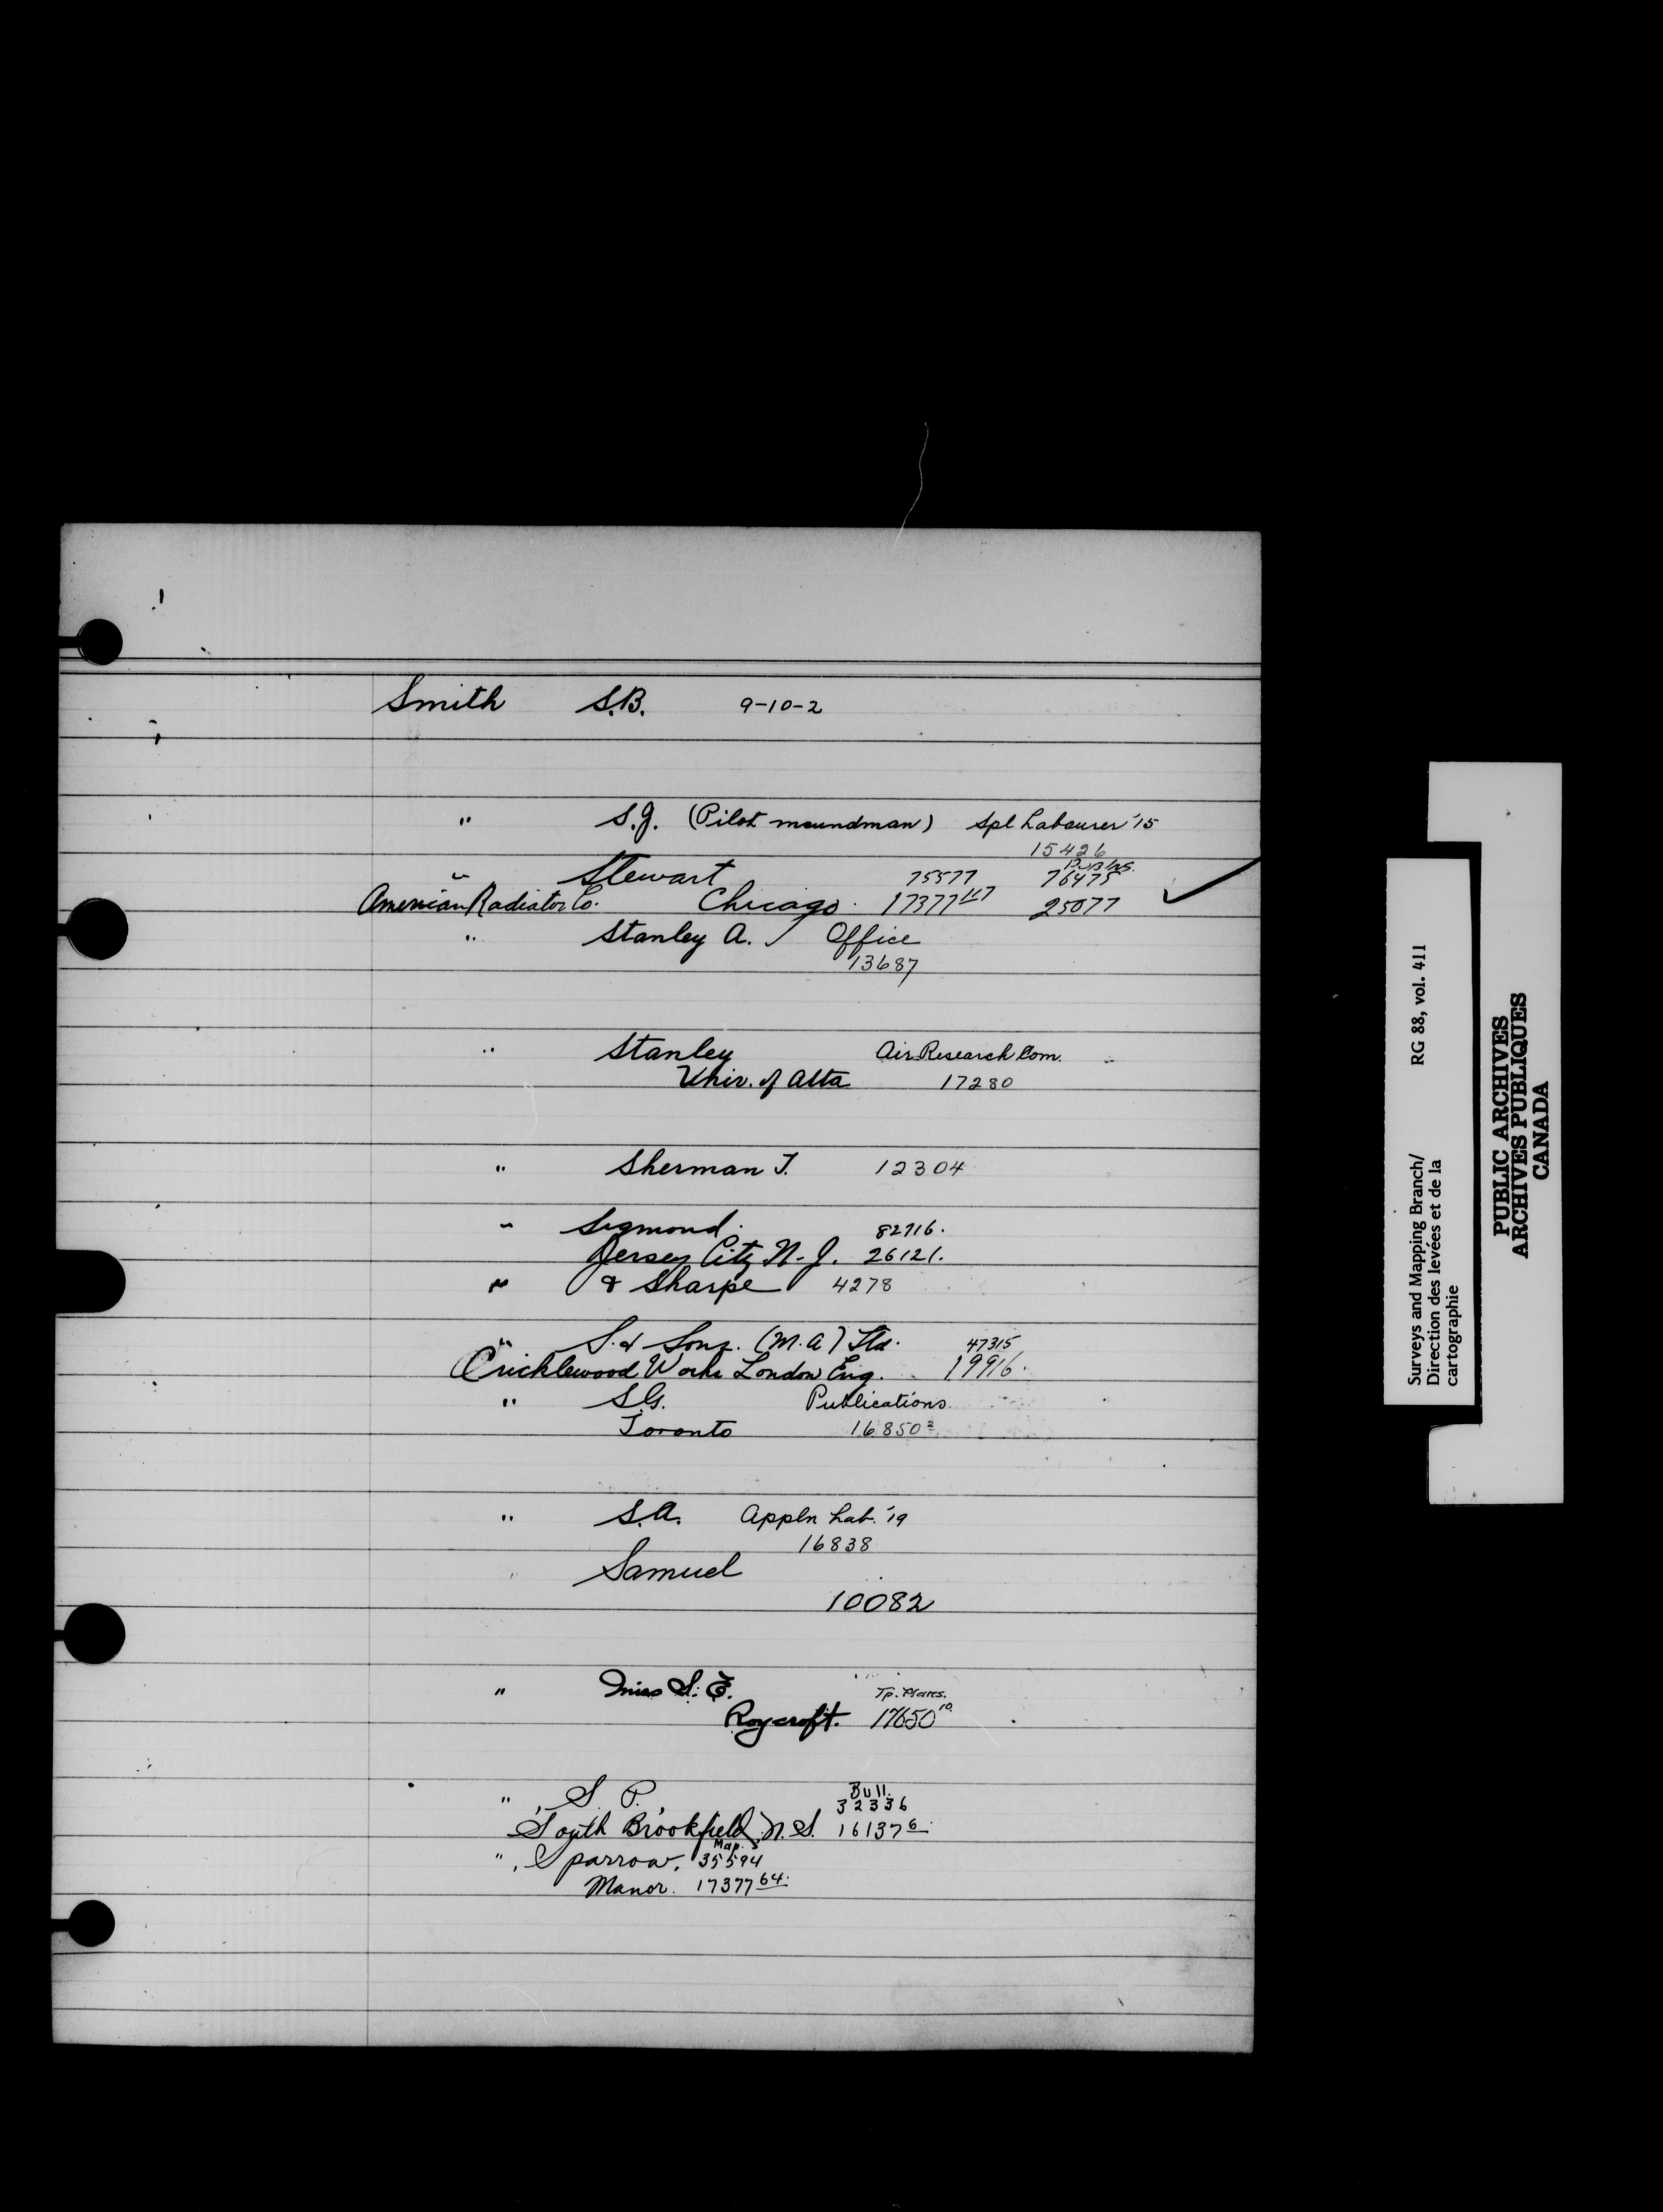 Smith S.B. 9-10-2
" S.J. (Pilot moundman) Spl Labourer '15
15426
" Stewart 75577 76475
American Radiator Co. Chicago. 17377 25077
" Stanley A. Office
13687
" Stanley Air Research Com.
Univ. of Alta 17280
" Sherman T. 12304
" Sigmond. 82716.
Jersey City N.J. 26121.
" & Sharpe 4278
" S. & Sons. (M.A) Ltd. 47315
Cricklewood Works London Eng. 19916.
" S.G. Publications
Toronto 16850²
" S.A. Appln Lab. '19
16838
Samuel
10082
" Miss S. E. Tp. Plans.
Roycroft. 17650¹⁰
" , S. P., Bull.
32336
South Brookfield, N.S. 16137⁶
Map.
" , Sparrow, 35594
Manor. 17377⁶⁴·
Surveys and Mapping Branch/ RG 88, vol. 411
Direction des levées et de la
cartographie
PUBLIC ARCHIVES
ARCHIVES PUBLIQUES
CANADA